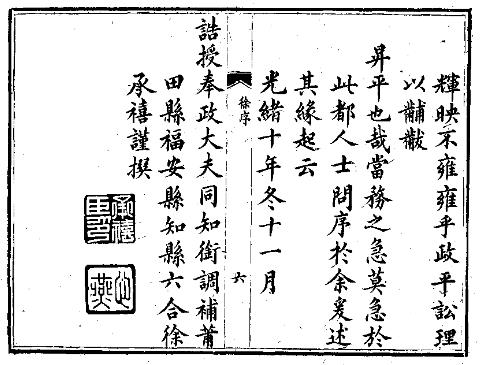 輝映不雍雍乎政平訟理
以黼黻
昇平也哉當務之急莫急於
此都人士問序於余爰述
其緣起云
光緒十年冬十一月
徐序
六
誥授奉政大夫同知銜調補莆
田縣福安縣知縣六合徐
承禧謹撰
承禧